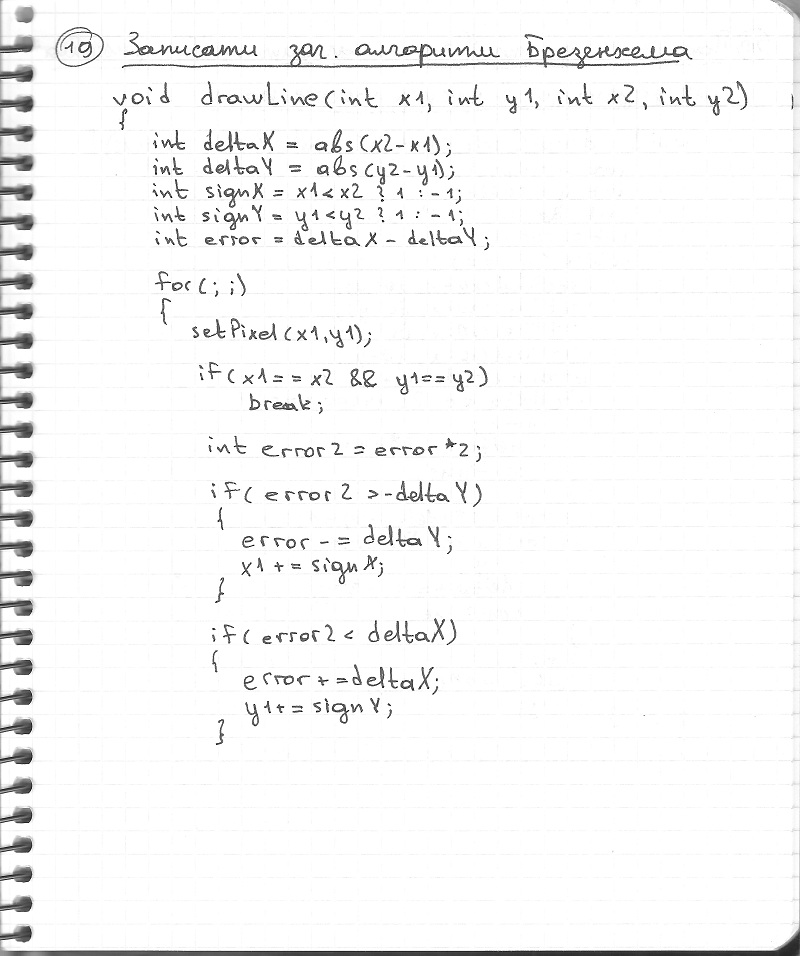 19 Записати заг. алгоритми Брезенхема
void drawLine(int x1, int y1, int x2, int y2)
{
int deltaX = abs(x2-x1);
int deltaY = abs(y2-y1);
int signX = x1<x2 ? 1 : -1;
int signY = y1<y2 ? 1 : -1;
int error = deltaX - deltaY;
for(;;)
{
setPixel(x1,y1);
if(x1==x2 && y1==y2)
break;
int error2 = error*2;
if(error2 >-deltaY)
{
error -= deltaY;
x1 += signX;
}
if(error2 < deltaX)
{
error += deltaX;
y1+= signY;
}